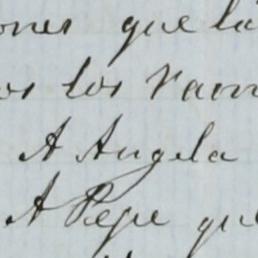 ones que la
os los ram
A Angela
A Pepe que